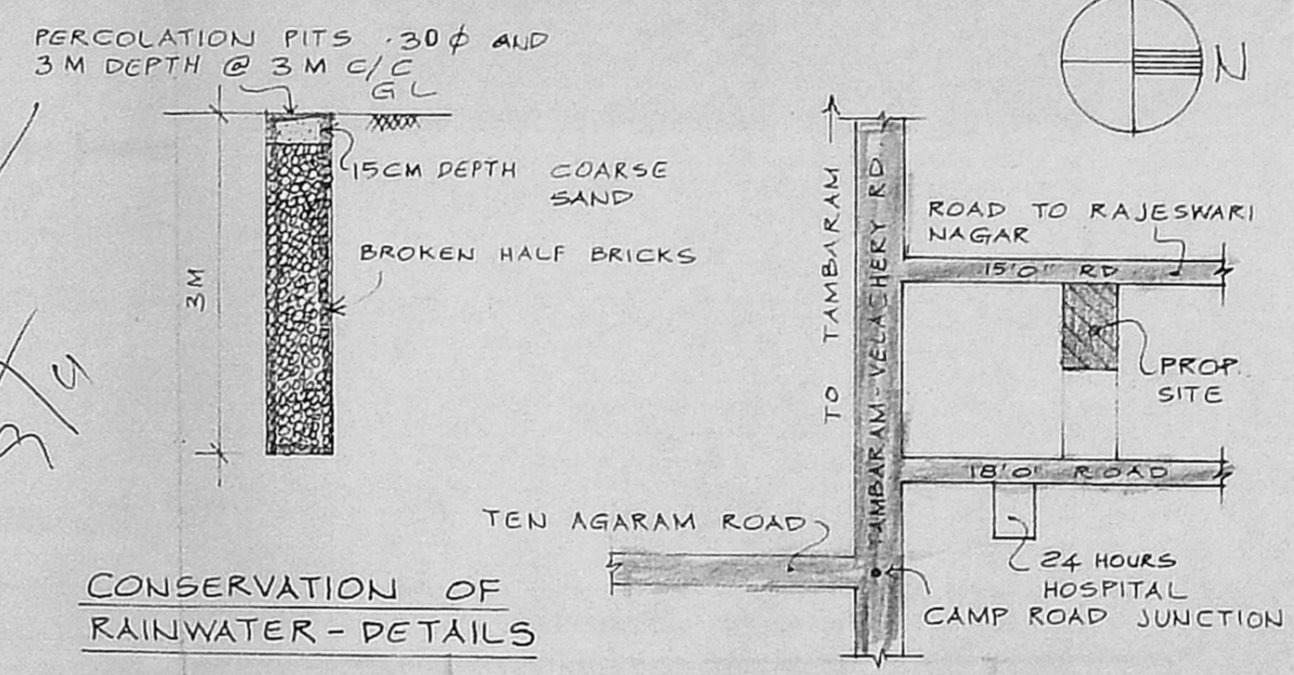 PERCOLATION PITS .30 ϕ AND
3 M DEPTH @ 3 M C/C
GL
15CM DEPTH COARSE
SAND
BROKEN HALF BRICKS
3M
CONSERVATION OF
RAINWATER - DETAILS
N
TO TAMBARAM
TAMBARAM-VELACHERY RD.
ROAD TO RAJESWARI
NAGAR
15'0" RD
PROP.
SITE
18'0" ROAD
TEN AGARAM ROAD
24 HOURS
HOSPITAL
CAMP ROAD JUNCTION